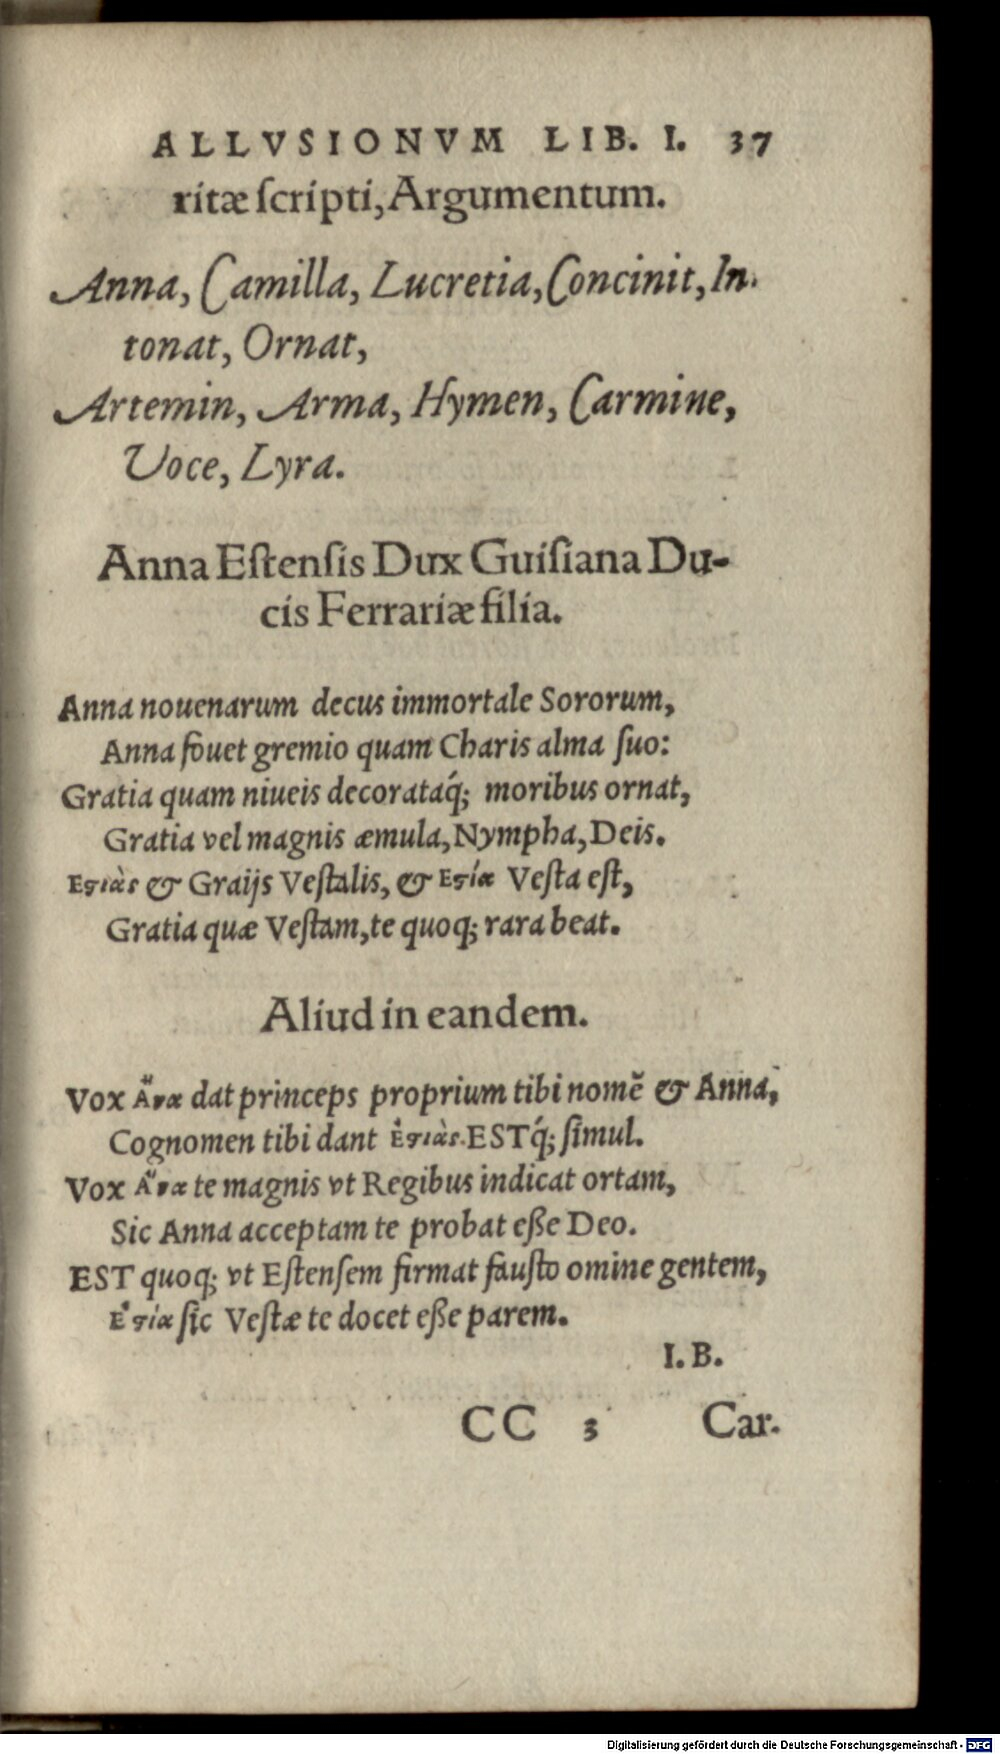 ALLVSIONVM LIB. I. 37
ritæ ſcripti, Argumentum.
Anna, Camilla, Lucretia, Concinit, In-
tonat, Ornat,
Artemin, Arma, Hymen, Carmine,
Voce, Lyra.
Anna Eſtenſis Dux Guiſiana Du-
cis Ferrariæ filia.
Anna nouenarum decus immortale Sororum,
Anna fouet gremio quam Charis alma ſuo:
Gratia quam niueis decorataq́; moribus ornat,
Gratia vel magnis æmula, Nympha, Deis.
Εϛιὰς & Graijs Veſtalis, & Εϛία Veſta eſt,
Gratia quæ Veſtam, te quoq; rara beat.
Aliud in eandem.
Vox Ἄνα dat princeps proprium tibi nomē & Anna,
Cognomen tibi dant Ἑϛιὰς. ESTq́; ſimul.
Vox Ἄνα te magnis vt Regibus indicat ortam,
Sic Anna acceptam te probat eße Deo.
EST quoq; vt Eſtenſem firmat fauſto omine gentem,
Ἑϛία ſic Veſtæ te docet eße parem.
I. B.
CC 3 Car-
Digitalisierung gefördert durch die Deutsche Forschungsgemeinschaft - DFG